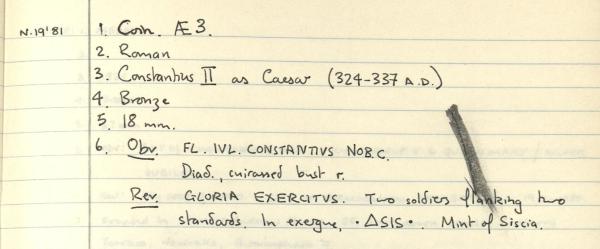 N.19'81
1. Coin. Æ3.
2. Roman
3. Constantius II as Caesar (324-337 A.D.)
4. Bronze
5. 18 mm.
6. Obv. FL. IVL. CONSTANTIVS NOB.C.
Diad., cuirassed bust r.
Rev. GLORIA EXERCITVS. Two soldiers flanking two
standards. In exergue, ·ΔSIS·. Mint of Siscia.